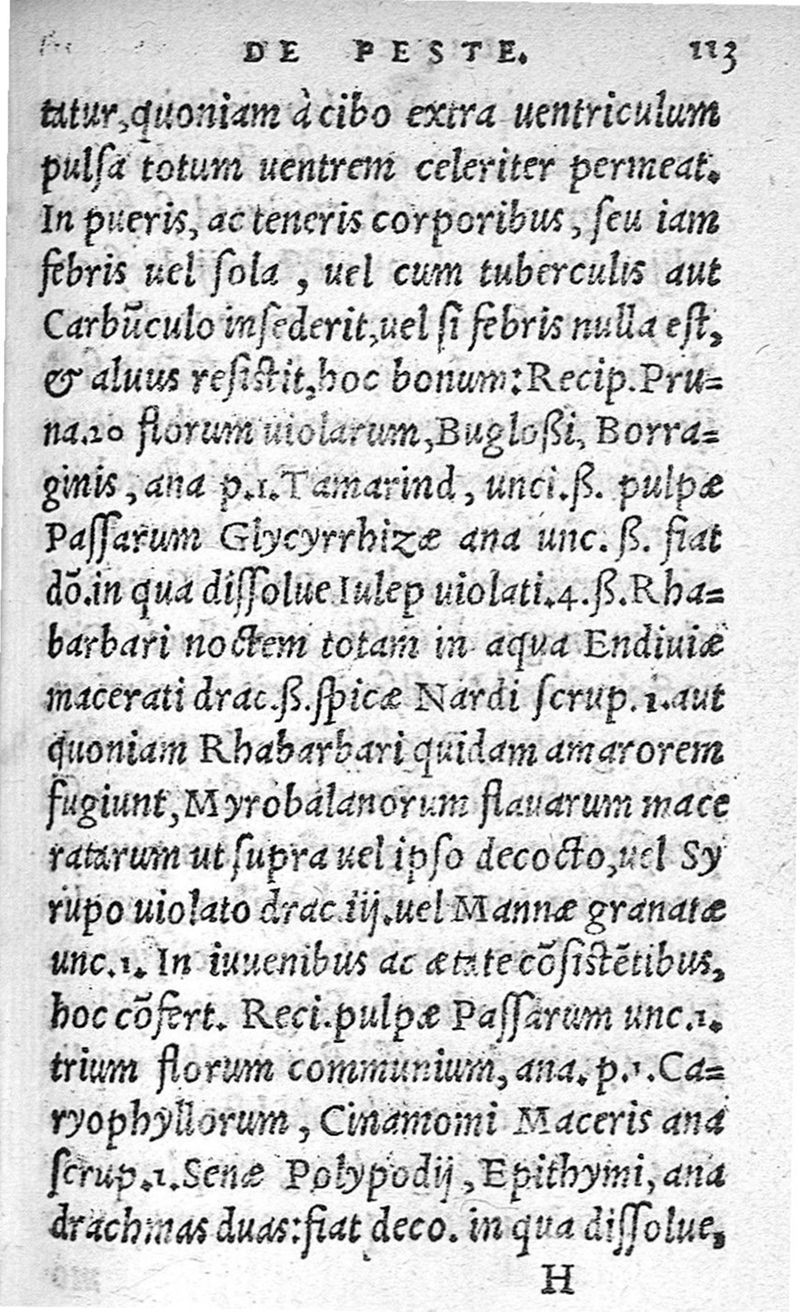 DE PESTE. 113
tatur, quoniam à cibo extra uentriculum
pulſa totum uentrem celeriter permeat.
In pueris, ac teneris corporibus, ſeu iam
febris uel ſola, uel cum tuberculis aut
Carbũculo inſederit, uel ſi febris nulla eſt,
& aluus reſiſtit, hoc bonum: Recip. Pru=
na.20 florum uiolarum, Bugloßi, Borra=
ginis, ana p.1. Tamarind, unci.ß. pulpæ
Paſſarum Glycyrrhizæ ana unc. ß. fiat
dõ. in qua diſſolue Iulep uiolati.4.ß. Rha=
barbari noctem totam in aqua Endiuiæ
macerati drac.ß. ſpicæ Nardi ſcrup.1. aut
quoniam Rhabarbari quidam amarorem
fugiunt, Myrobalanorum flauarum mace
ratarum ut ſupra uel ipſo decocto, uel Sy
rupo uiolato drac.iij. uel Mannæ granatæ
unc.1. In iuuenibus ac ætate cõſiſtẽtibus,
hoc cõfert. Reci. pulpæ Paſſarum unc.1.
trium florum communium, ana. p.1. Ca=
ryophyllorum, Cinamomi Maceris ana
ſcrup.1. Senæ Polypodij, Epithymi, ana
drachmas duas: fiat deco. in qua diſſolue,
H